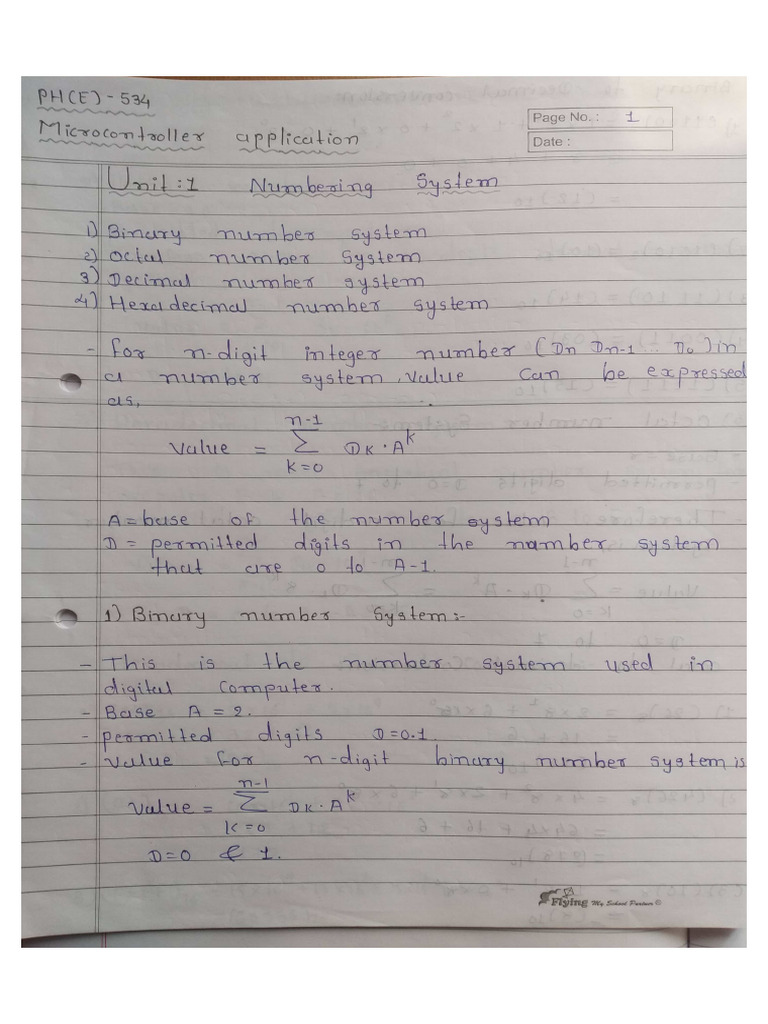 PH(E) - 534
Microcontroller application
Page No. : 1
Date :
Unit : 1 Numbering System
1) Binary number system
2) Octal number System
3) Decimal number system
4) Hexadecimal number system
- for n-digit integer number (Dn Dn-1 .. D0) in
a number system, value can be expressed
as,
n-1
Value = Σ DK · A^k
k=0
A = base of the number system
D = permitted digits in the number system
that are 0 to A-1.
1) Binary number System :-
- This is the number system used in
digital computer.
- Base A = 2.
- permitted digits D=0.1.
- value for n-digit binary number system is
n-1
Value = Σ DK · A^k
K=0
D=0 & 1.
Flying My School Partner ©